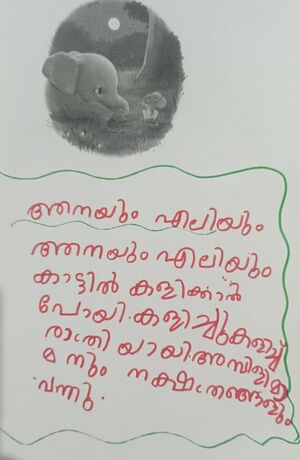 ആനയും എലിയും
ആനയും എലിയും
കാട്ടിൽ കളിക്കാൻ
പോയി. കളിച്ചുകളിച്ച്
രാത്രിയായി. അമ്പിളിമാ
മനും നക്ഷത്രങ്ങളും
വന്നു.